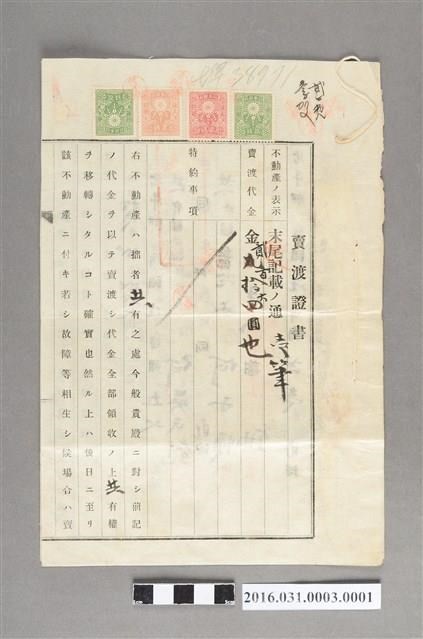 賣渡證書
不動產ノ表示 末尾記載ノ通 壹筆
賣渡代金 金貳百九拾四圓也
特約事項
右不動產ハ拙者共有之處今般貴殿ニ對シ前記
ノ代金ヲ以テ賣渡シ代金全部領收ノ上共有權
ヲ移轉シタルコト確實也然ル上ハ後日ニ至リ
該不動產ニ付キ若シ故障等相生シ候場合ハ賣
2016.031.0003.0001